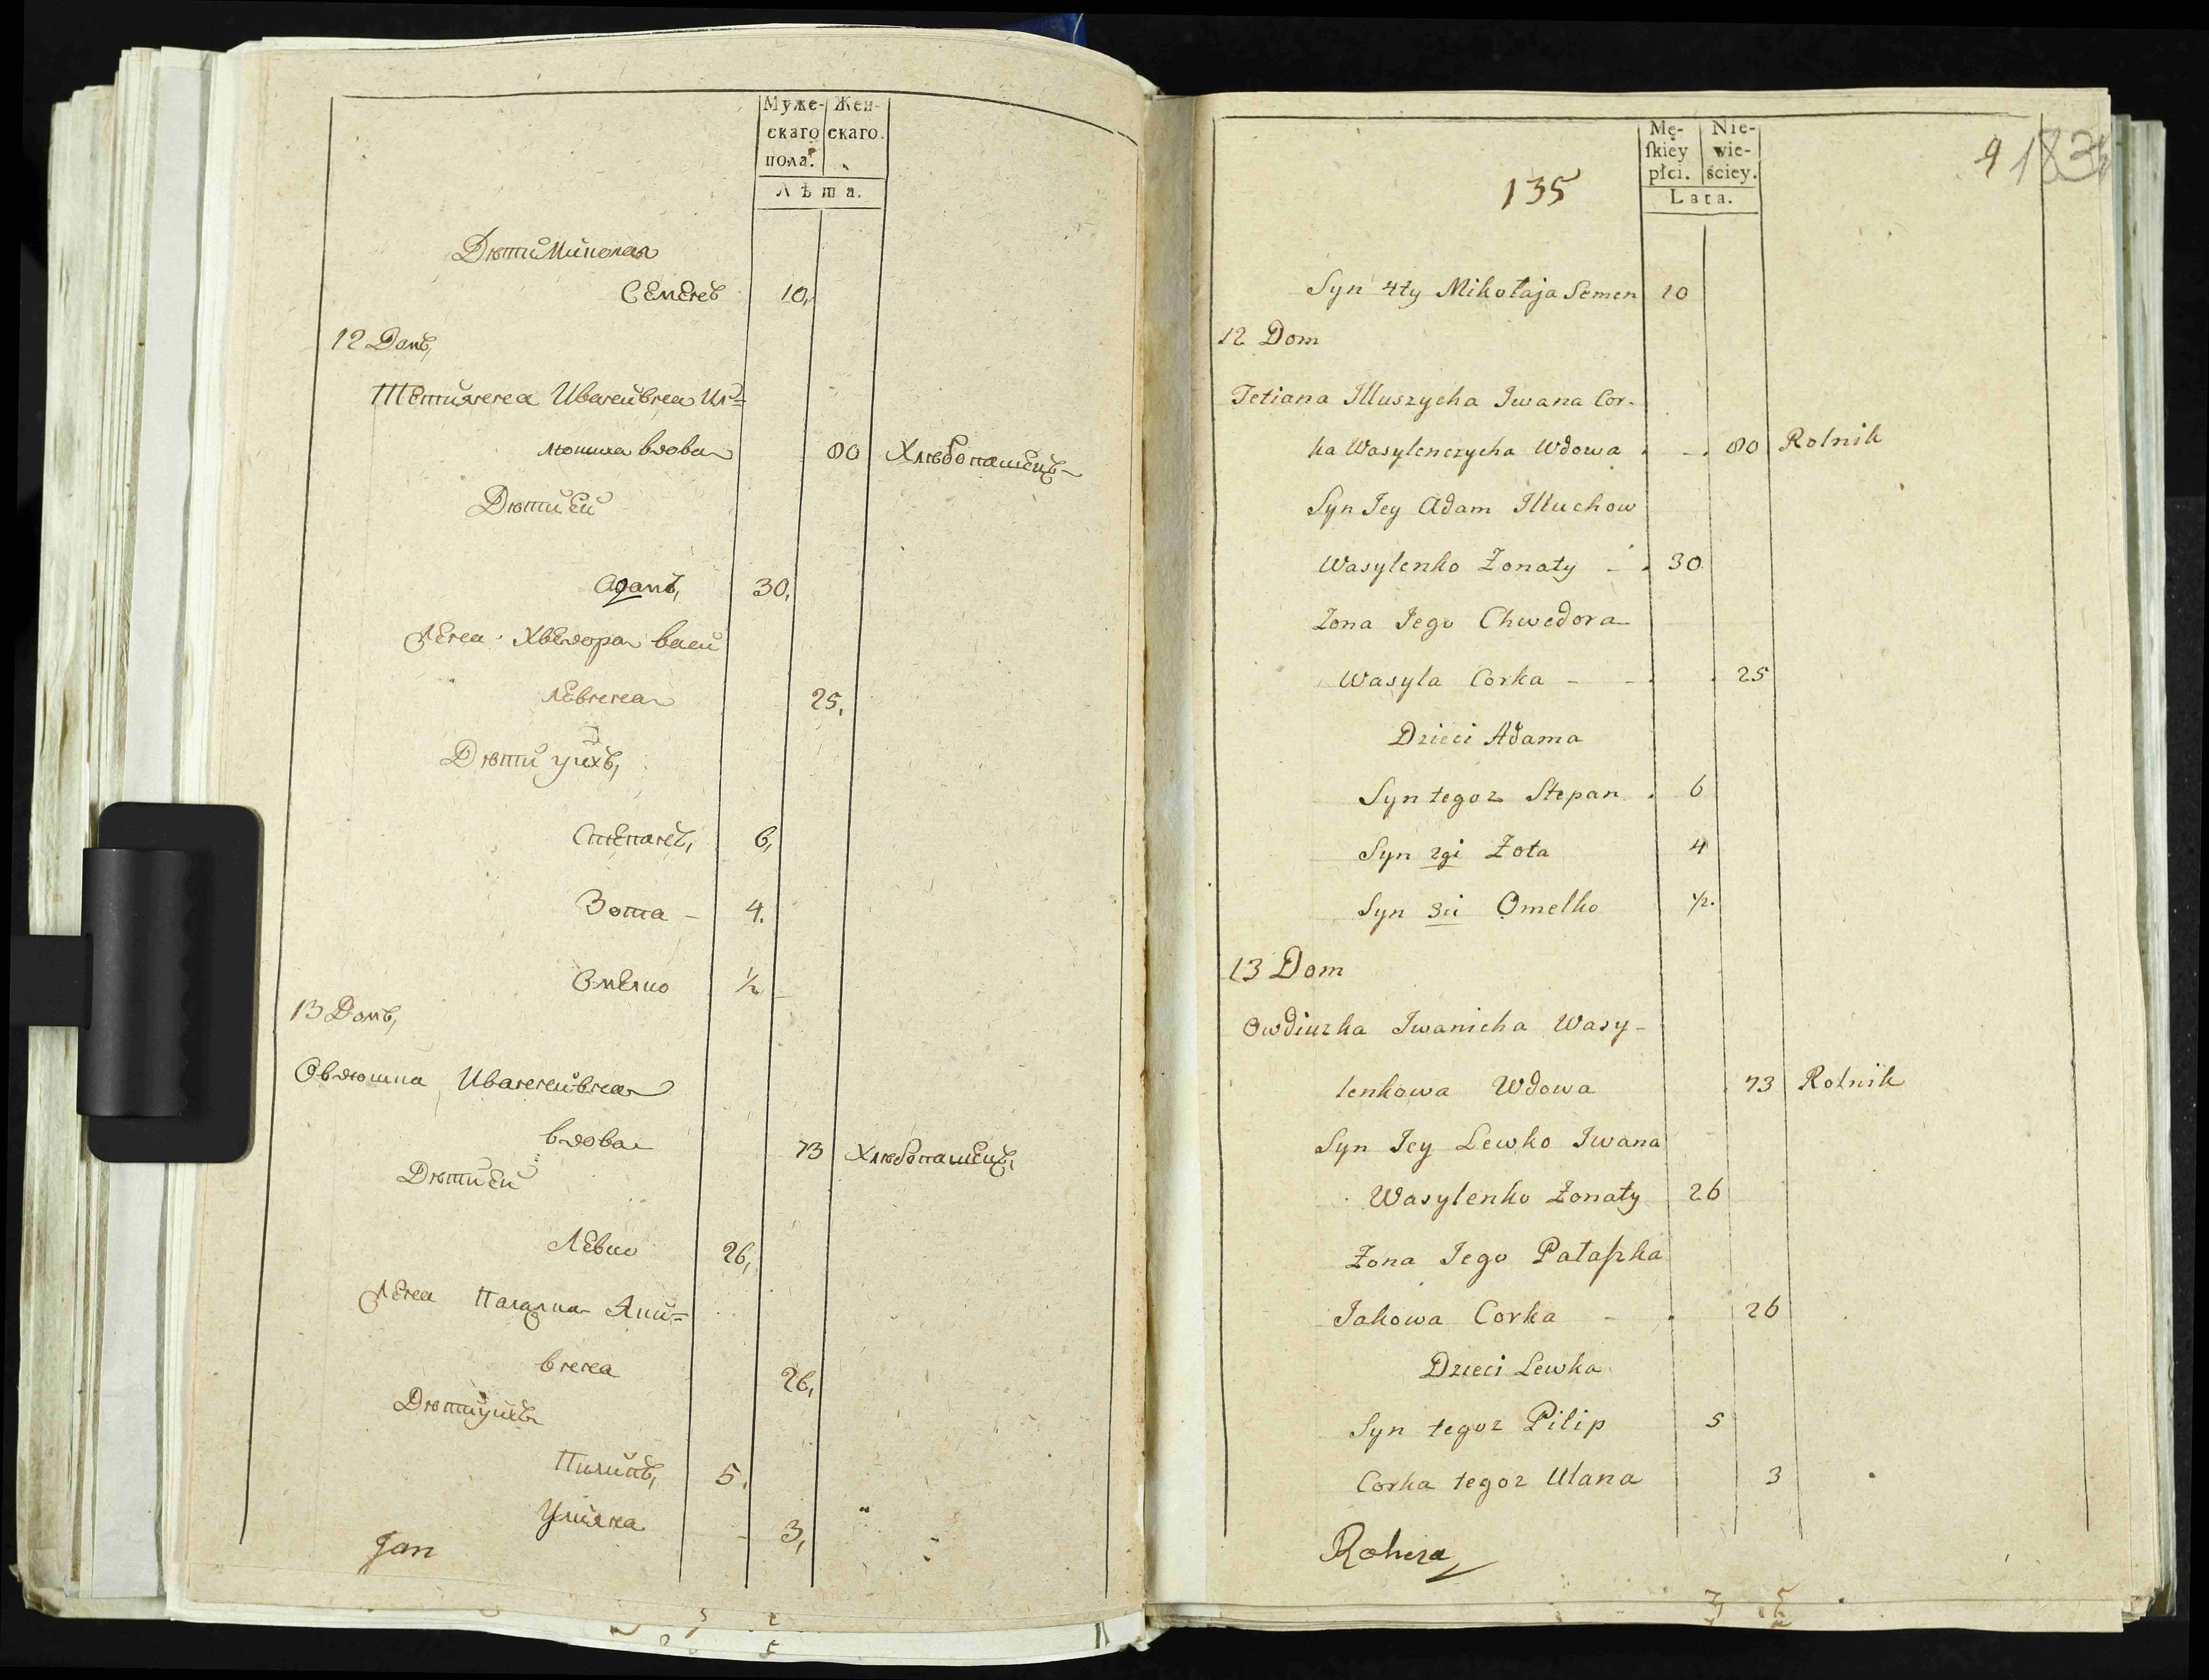 Муже- Жен-
скаго скаго.
пола.
Лѣта.
Дѣти Миколая
Семенъ 10,
12 Домъ,
Тетиянна Иванивна Ил=
люшиха вдова 80 Хлѣбопашецъ
Дѣти Ей
Адамъ, 30,
Жена Хведора Васи
левнна 25,
Дѣти уихъ,
Степанъ, 6,
Зота - 4.
Омелко ½
13 Домъ,
Овдюшка Иваннивна
вдова 73 Хлѣбопашецъ,
Дѣти Ей
Левко 26,
Жена Палажка Яки=
внна 26,
Дѣти уихъ
Пилипъ, 5.
Улияна 3,
Jan
Mę- Nie-
ſkiey wie-
płci. ściey.
Lata.
135
9 183
Syn 4ty Mikołaja Semen 10
12 Dom
Tetiana Illuszycha Iwana Cor-
ka Wasylenczycha Wdowa 80 Rolnik
Syn Iey Adam Illuchow
Wasylenko Żonaty - 30
Żona Iego Chwedora
Wasyla Corka - - 25
Dzieci Adama
Syn tegoz Stepan 6
Syn 2gi Zota 4
Syn 3ci Omelko ½.
13 Dom
Owdiuzka Iwanicha Wasy-
lenkowa Wdowa 73 Rolnik
Syn Iey Lewko Iwana
Wasylenko Żonaty 26
Żona Iego Pałaſzka
Iakowa Corka - 26
Dzieci Lewka
Syn tegoz Pilip 5
Corka tegoz Ulana 3